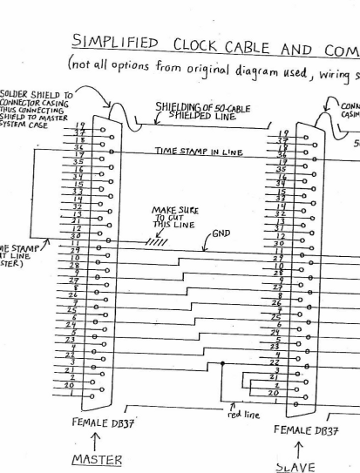 SIMPLIFIED CLOCK CABLE AND COM
(not all options from original diagram used, wiring s
SOLDER SHIELD TO
CONNECTOR CASING
THUS CONNECTING
SHIELD TO MASTER
SYSTEM CASE
SHIELDING OF 50-CABLE
SHIELDED LINE
CONN
CASIN
TIME STAMP IN LINE
MAKE SURE
TO CUT
THIS LINE
GND
ME STAMP
UT LINE
STER)
19
37
18
36
17
35
16
34
15
33
14
32
13
31
12
30
11
29
10
28
9
27
8
26
7
25
6
24
5
23
4
22
3
21
2
20
1
19
37
18
36
17
35
16
34
15
33
14
32
13
31
12
30
11
29
10
28
9
27
8
26
7
25
6
24
5
23
4
22
3
21
2
20
1
red line
FEMALE DB37
FEMALE DB37
MASTER
SLAVE